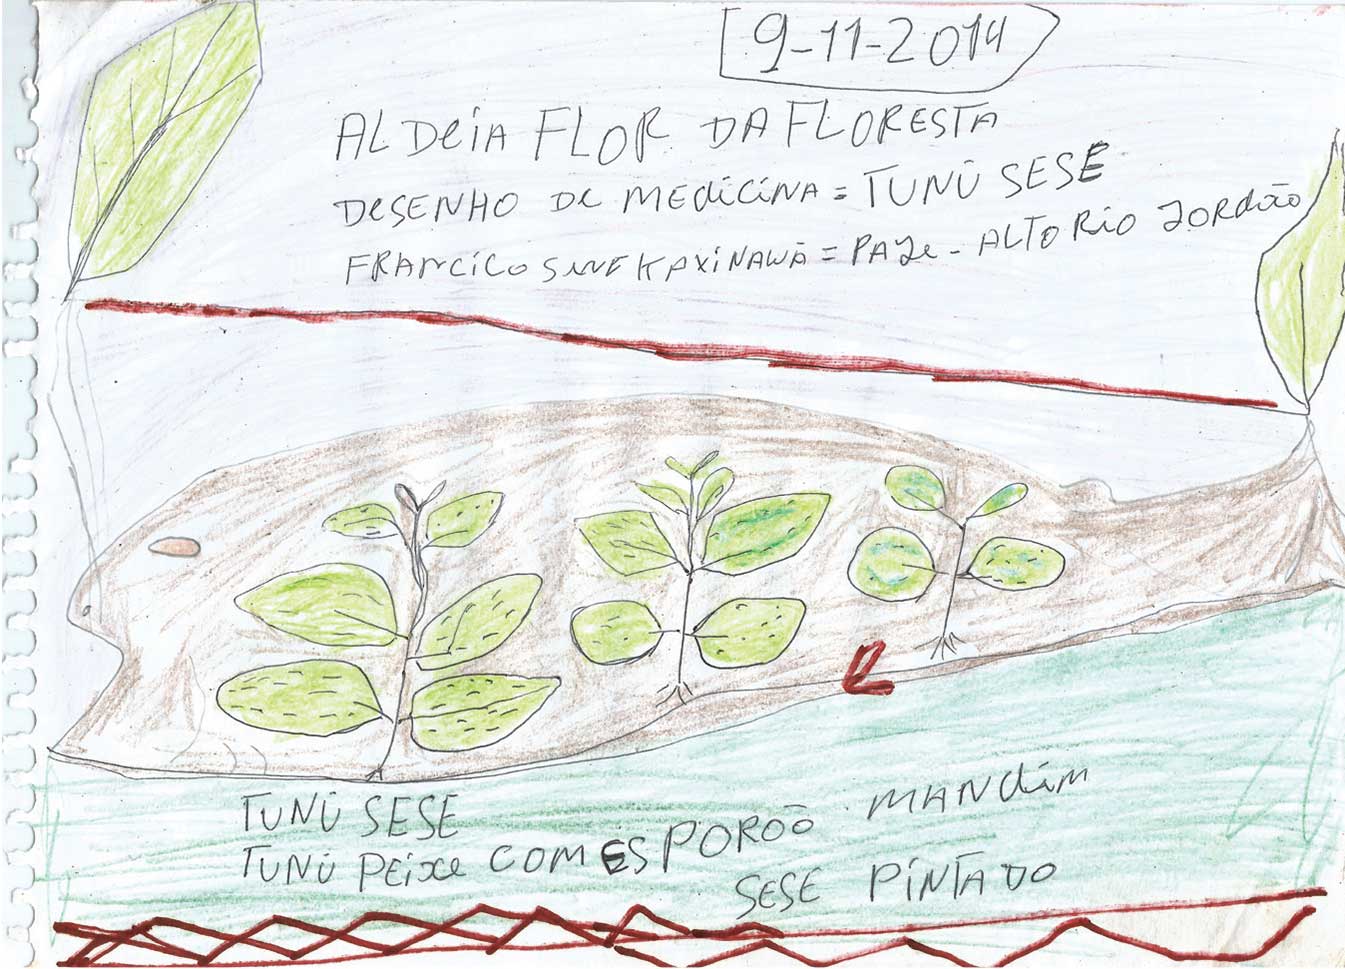 9-11-2014
ALDeiA FLOR DA FLORESTA
DeSENHO De MEdiciNA = TUNÚ SESE
FRANCiCO SiNE KAXiNAWÁ = PAJe - ALTO RiO JORdão
TUNÚ SESE
TUNÚ PEixe COM ESPORÕO MANdim
SESE PiNTADO